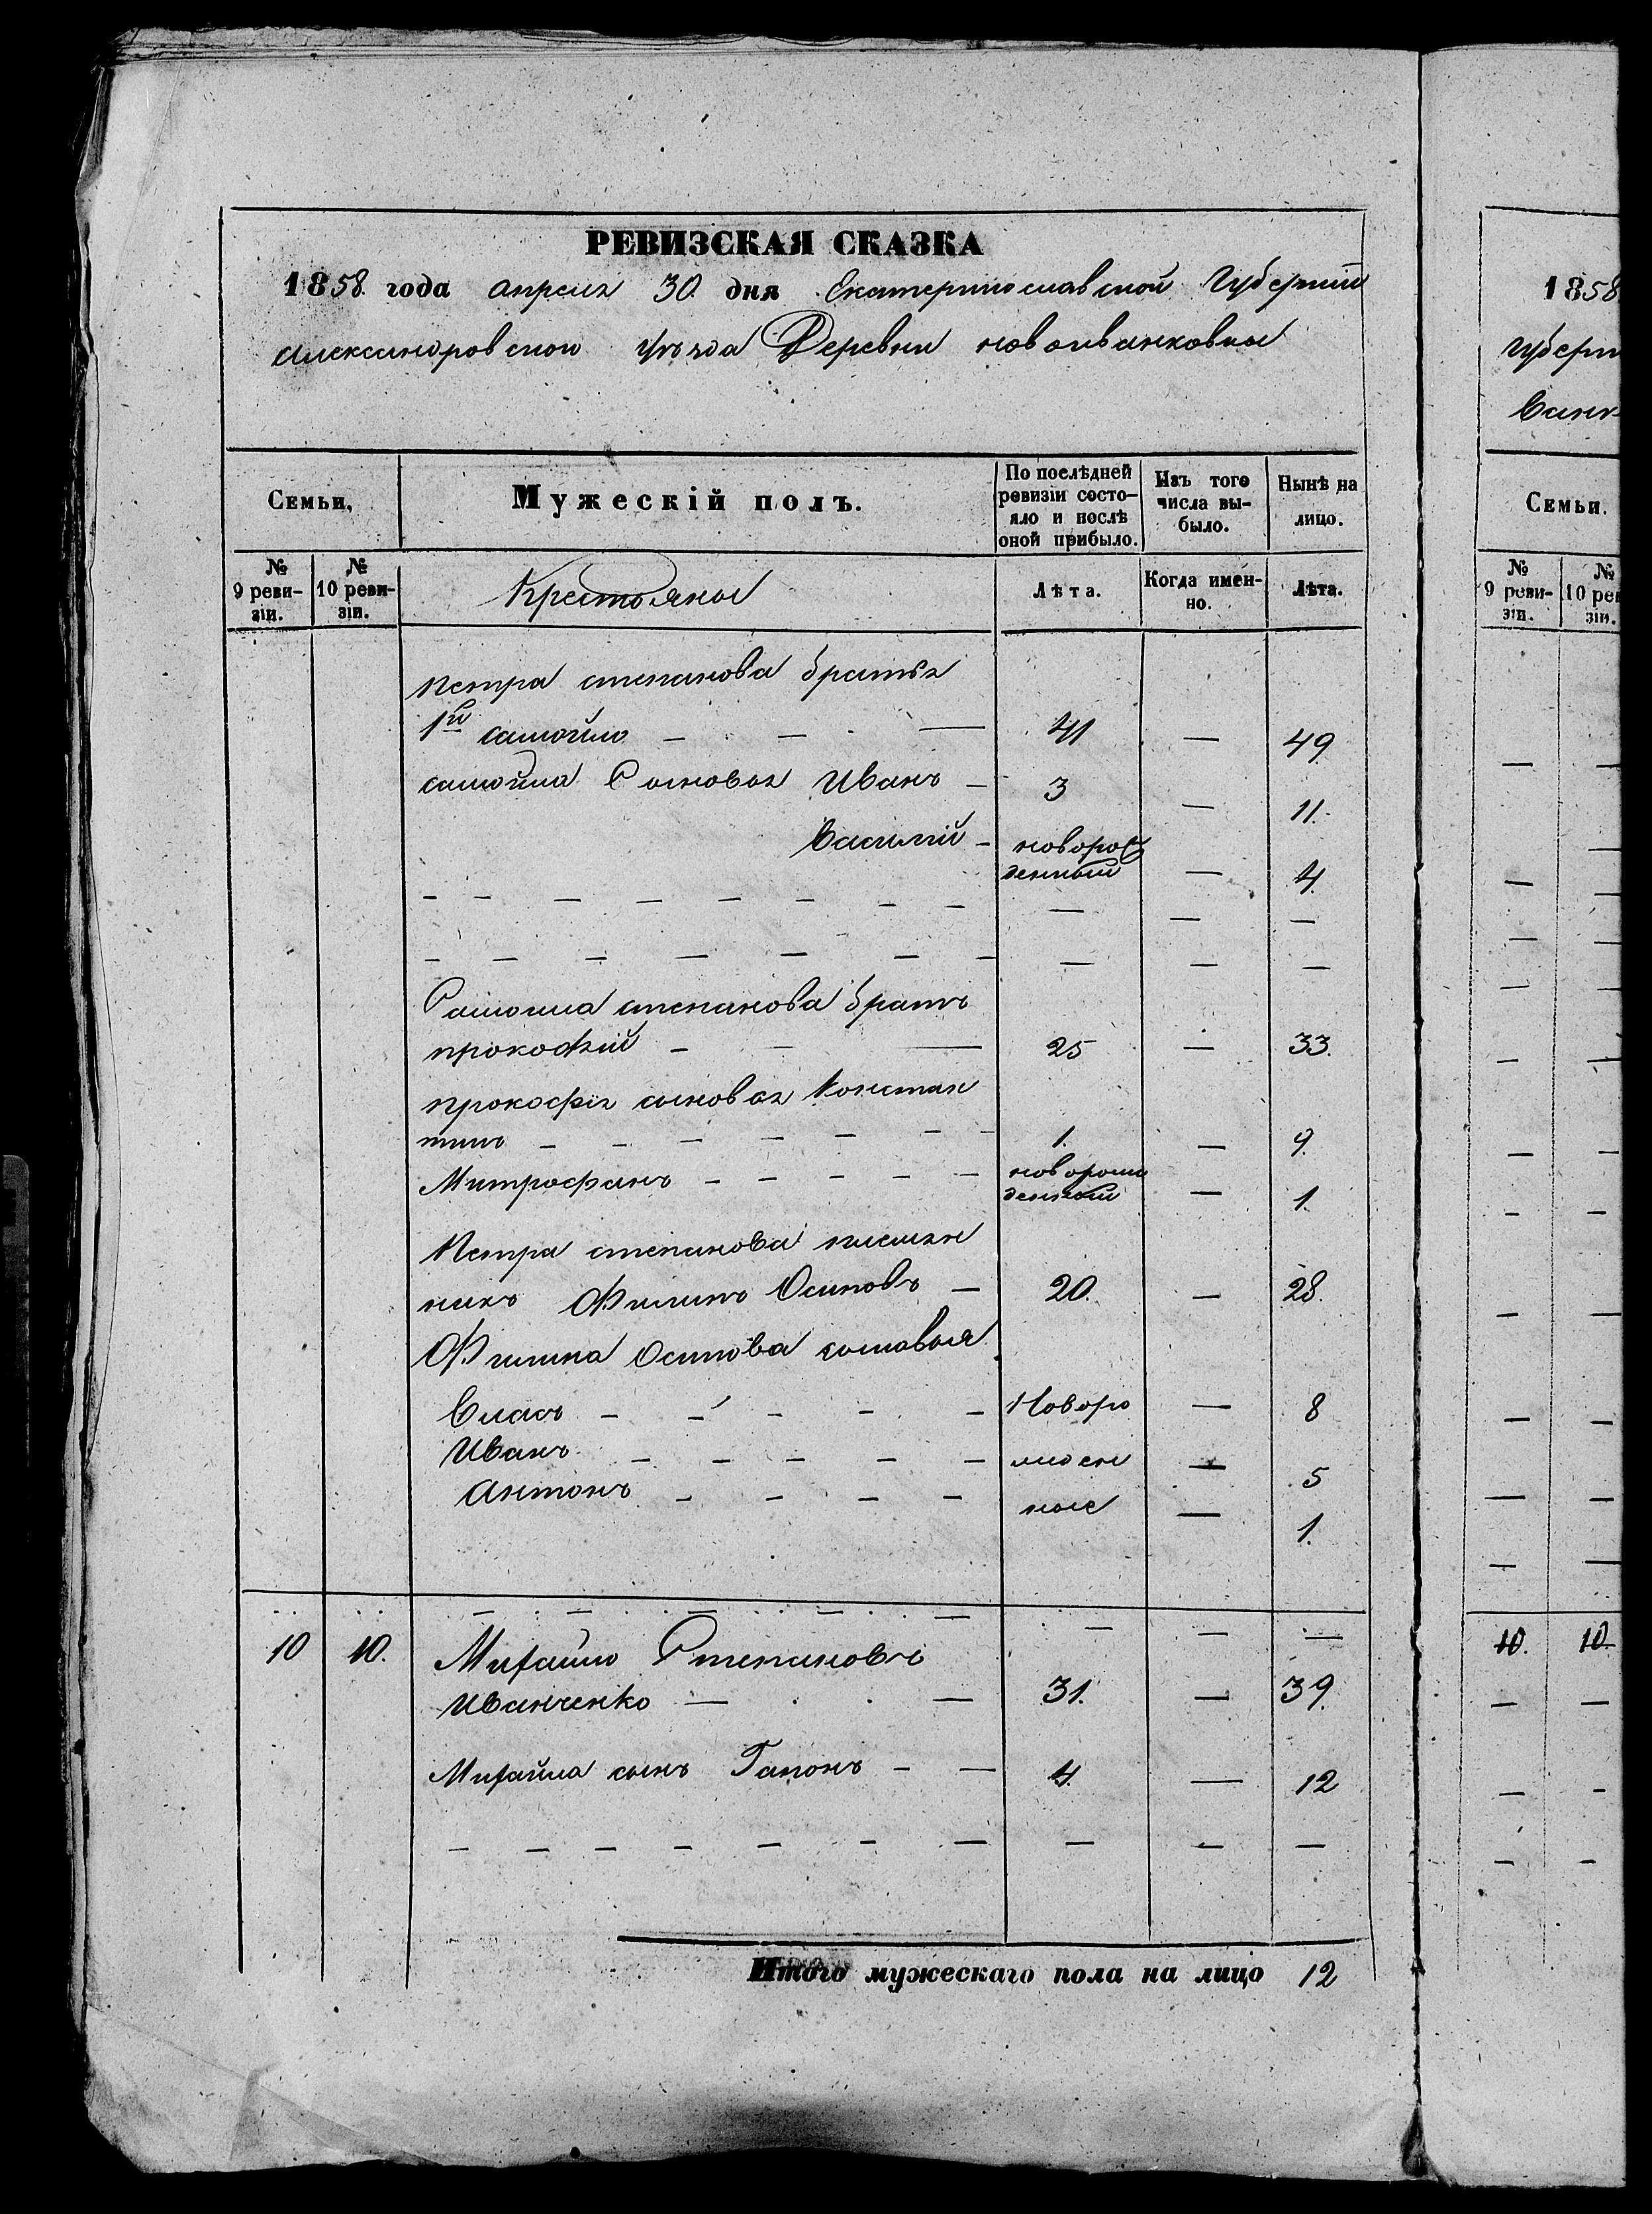 РЕВИЗСКАЯ СКАЗКА
1858. года апреля 30. дня Екатеринославской Губернии
александровского уѣзда Деревни новоиванковки
Семьи,
Мужескій полъ.
По послѣдней ревизіи состо-
яло и послѣ
оной прибыло.
Изъ того
числа вы-
было.
Нынѣ на
лицо.
№
9 реви-
зіи.
№
10 реви-
зіи.
Крестьяны
Лѣта.
Когда имен-
но.
Лѣта.
петра степанова братья
1й самойло — — — 41 — 49
самойла Сыновья Иванъ — 3 — 11.
Василий — новорож
денный — 4.
— — — — — — — — — — —
— — — — — — — — — —
Самойла степанова братъ
прокофий — — — 25 — 33.
прокофия сыновья Констан
тинъ — — — — — — — 1. — 9.
Митрофанъ — — — — — новорож
денный — 1.
Петра степанова племян
никъ Филипъ Осиповъ — 20. — 28.
Филипа Осипова сыновья
Власъ — — — — — Новоро — 8
Иванъ — — — — — жден — 5
антонъ — — — — ные — 1.
— — — — — — — — —
10 10. Михайло Степановъ
Иванченко — — 31. — 39.
Михайла сынъ Гапонъ — — 4. — 12
— — — — — — — — — —
Итого мужескаго пола на лицо 12
1858
губерн
Семьи.
№
9 реви-
зіи.
№
10 ре
зіи.
10. 10.